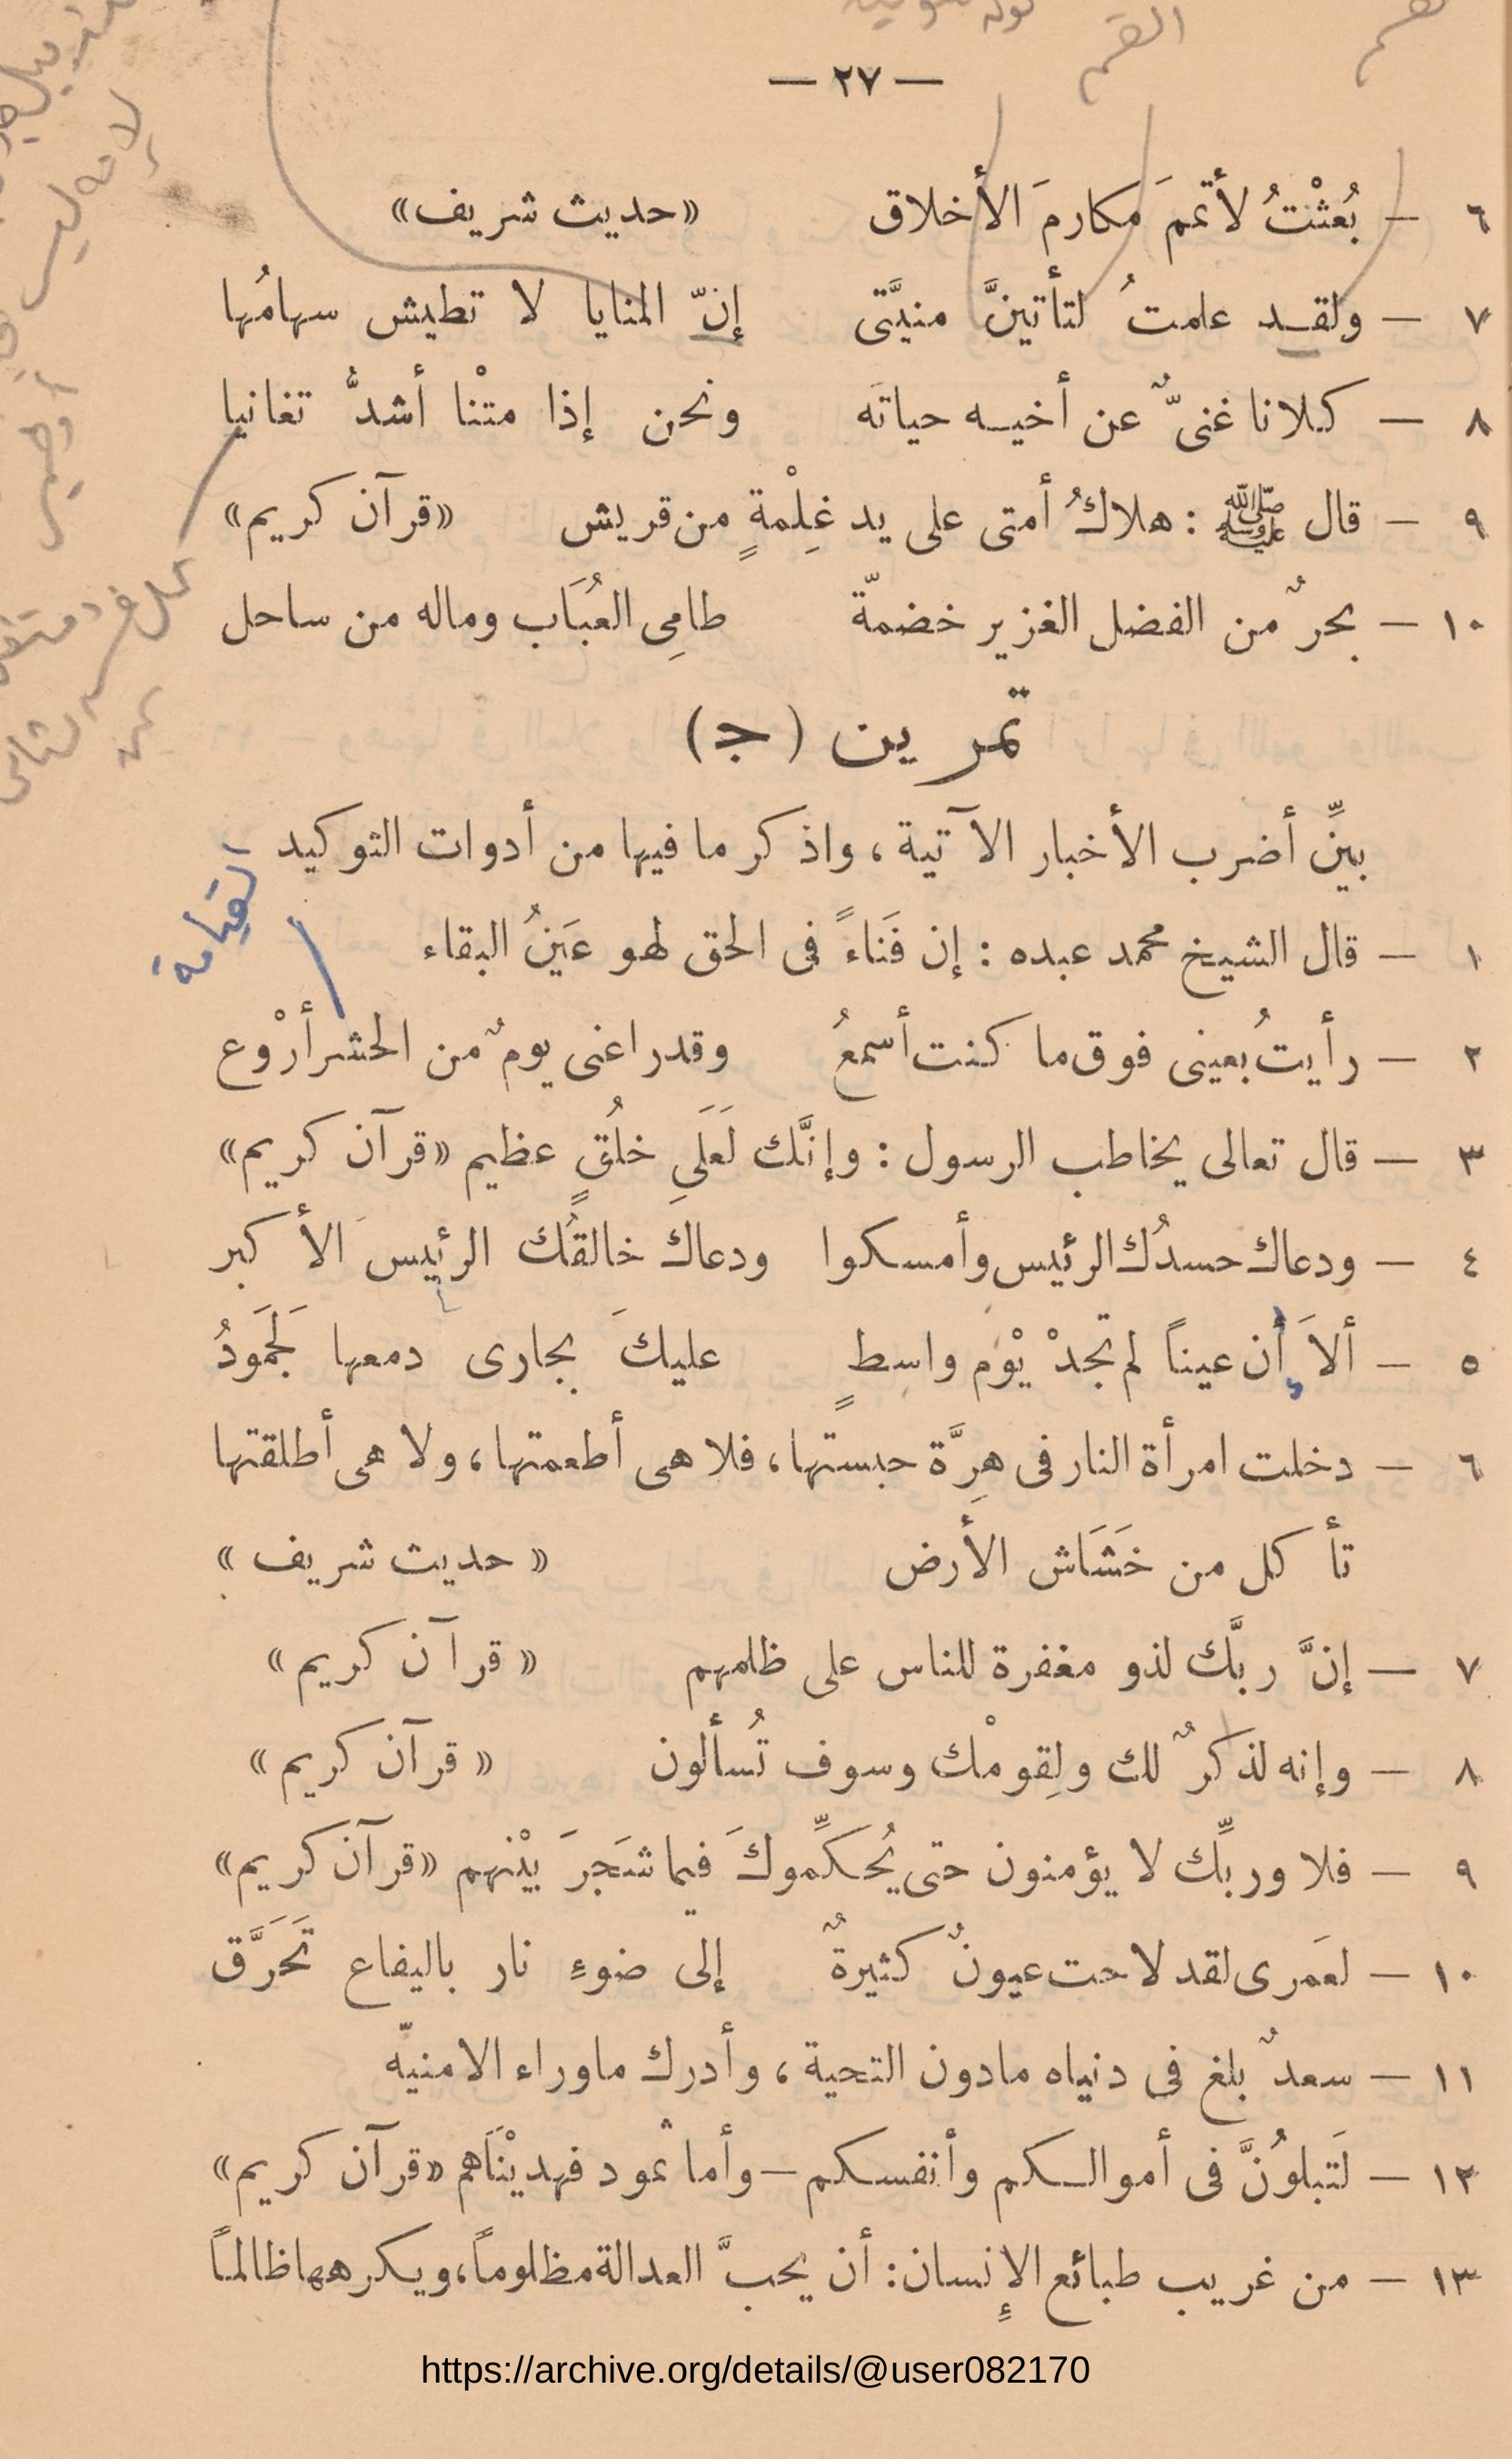 القسم
— ٢٧ —
٦ — بُعثْتُ لأتممَ مكارمَ الأخلاق «حديث شريف»
٧ — ولقد علمتُ لتأتينَّ منيَّتى إنّ المنايا لا تطيش سهامُها
٨ — كلانا غنىٌّ عن أخيه حياتَه ونحن إذا متْنا أشدُّ تغانيا
٩ — قال ﷺ : هلاكُ أمتى على يد غِلْمةٍ من قريش «قرآن كريم»
١٠ — بحرٌ من الفضل الغزير خضمّة طامِى العُبَاب وماله من ساحل
تمرين (ج)
بيِّن أضرب الأخبار الآتية ، واذكر ما فيها من أدوات التوكيد
القيامة
١ — قال الشيخ محمد عبده : إن فَناءً فى الحق لهو عَينُ البقاء
٢ — رأيتُ بعينى فوق ما كنت أسمعُ وقد راعنى يومٌ من الحشر أرْوع
٣ — قال تعالى يخاطب الرسول : وإنَّك لَعَلَى خلُقٍ عظيم «قرآن كريم»
٤ — ودعاك حسدُك الرئيس وأمسكوا ودعاكَ خالقُك الرئيسَ الأكبر
٥ — ألاَ أن عيناً لم تجدْ يوْم واسطٍ عليكَ بجارى دمعها لَجَمَودُ
٦ — دخلت امرأة النار فى هِرَّة حبستها ، فلا هى أطعمتها ، ولا هى أطلقتها
تأكل من خَشَاش الأرض «حديث شريف»
٧ — إنَّ ربَّك لذو مغفرة للناس على ظلمهم «قرآن كريم»
٨ — وإنه لذكرٌ لك ولِقومْك وسوف تُسألون «قرآن كريم»
٩ — فلا وربِّك لا يؤمنون حتى يُحكِّموكَ فيما شَجرَ بيْنهم «قرآن كريم»
١٠ — لعَمرى لقد لاحت عيونٌ كثيرةٌ إلى ضوءِ نار باليفاع تَحَرَّق
١١ — سعدٌ بلغ فى دنياه مادون التحية ، وأدرك ماوراء الامنيّه
١٢ — لَتبلوُنَّ فى أموالكم وأنفسكم — وأما ثمود فهديْنَاهم «قرآن كريم»
١٣ — من غريب طبائع الإِنسان : أن يحبَّ العدالة مظلوماً ، ويكرهها ظالماً
https://archive.org/details/@user082170